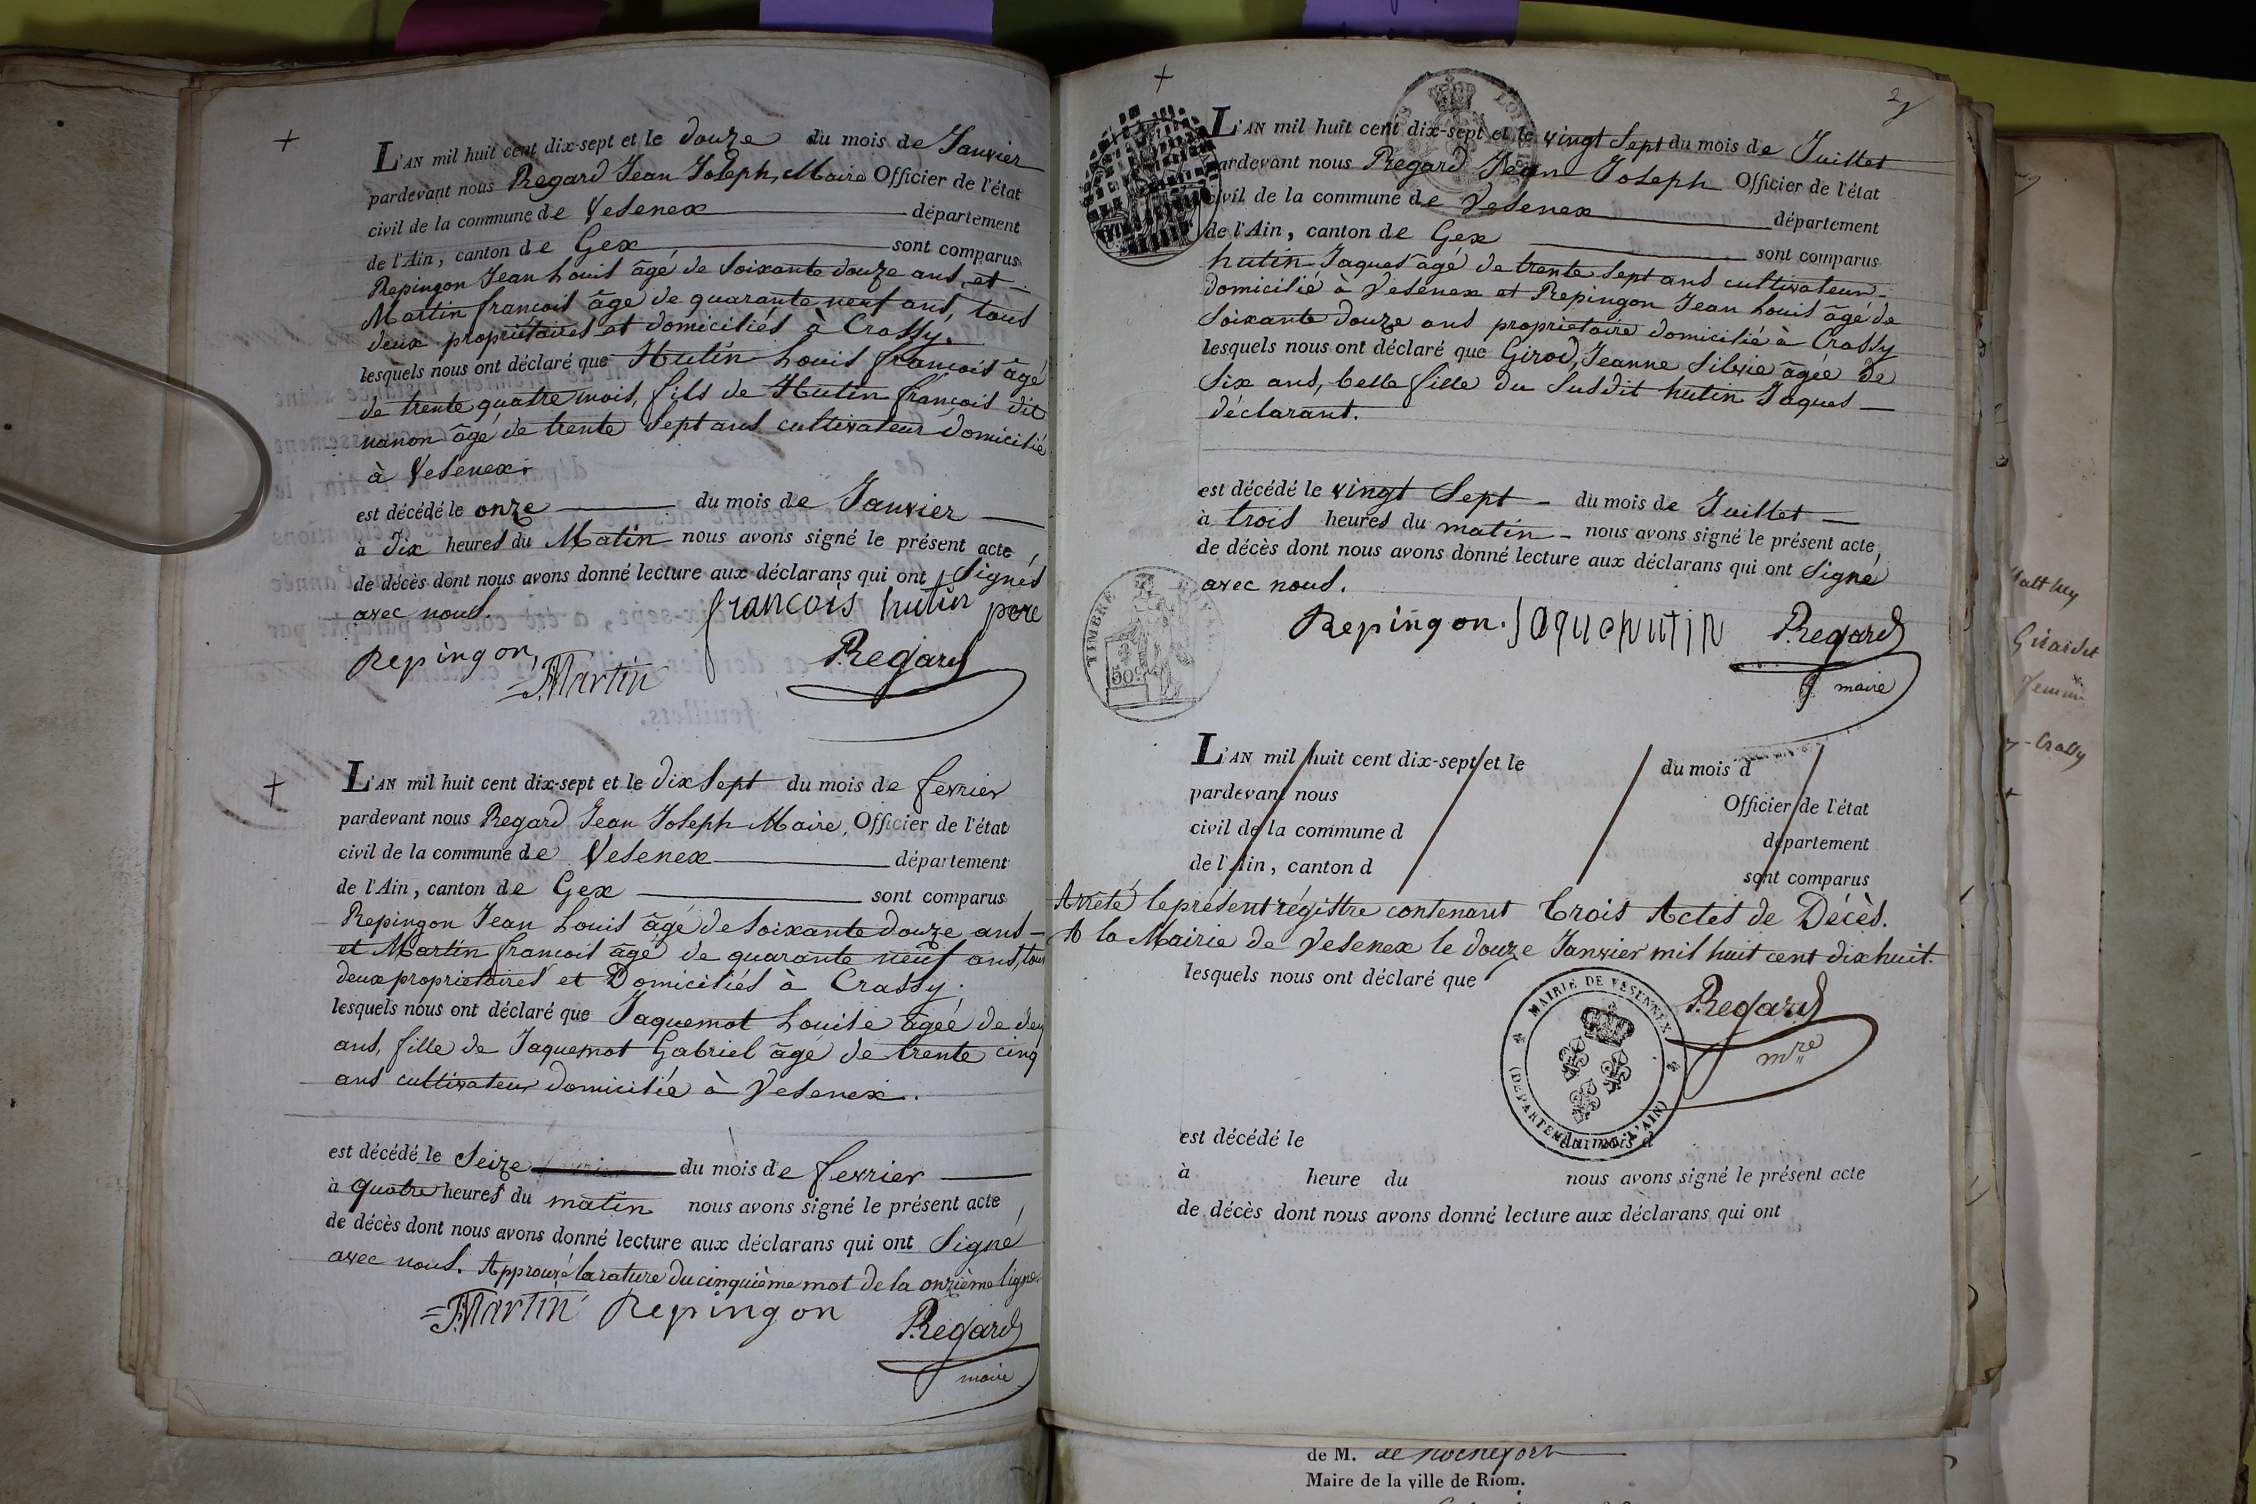 +
L'AN mil huit cent dix-sept et le douze du mois de Janvier
pardevant nous Regard Jean Joseph, Maire Officier de l'état
civil de la commune de Vesenex département
de l'Ain, canton de Gex sont comparus
Repingon Jean Louis âgé de soixante douze ans, et
Martin françois âgé de quarante neuf ans, tous
deux propriétaires et domiciliés à Crassy.
lesquels nous ont déclaré que Hutin Louis françois âgé
de trente quatre mois, fils de Hutin françois dit
nanon âgé de trente sept ans cultivateur domicilié
à Vesenex.
est décédé le onze du mois de Janvier
à dix heures du Matin nous avons signé le présent acte,
de décès dont nous avons donné lecture aux déclarans qui ont signés
avec nous. francois hutin pere
Repingon, Regard
=J.Martin
+
L'AN mil huit cent dix-sept et le dix sept du mois de fevrier
pardevant nous Regard Jean Joseph Maire, Officier de l'état
civil de la commune de Vesenex département
de l'Ain, canton de Gex sont comparus
Repingon Jean Louis âgé de soixante douze ans
et Martin françois âgé de quarante neuf ans, tous
deux proprietaires et Domiciliés à Crassy.
lesquels nous ont déclaré que Jaquemot Louise âgée de deux
ans, fille de Jaquemot Gabriel âgé de trente cinq
ans cultivateur domicilié à Vesenex.
est décédé le seize du mois de fevrier
à quatre heures du matin nous avons signé le présent acte,
de décès dont nous avons donné lecture aux déclarans qui ont signé
avec nous. Approuvé la rature du cinquième mot de la onzième ligne.
=J.Martin Repingon Regard
maire
+
L'AN mil huit cent dix-sept et le vingt sept du mois de Juillet
pardevant nous Regard Jean Joseph Officier de l'état
civil de la commune de Vesenex département
de l'Ain, canton de Gex sont comparus
hutin Jaques âgé de trente sept ans cultivateur
domicilié à Vesenex et Repingon Jean Louis âgé de
soixante douze ans proprietaire domicilié à Crassy
lesquels nous ont déclaré que Girod, Jeanne Silvie âgée de
six ans, belle fille du susdit hutin Jaques
déclarant.
est décédé le vingt sept du mois de Juillet
à trois heures du matin nous avons signé le présent acte,
de décès dont nous avons donné lecture aux déclarans qui ont signé
avec nous.
TIMBRE
50c
Repingon. Jaque hutin Regard
maire
L'AN mil huit cent dix-sept et le du mois d
pardevant nous Officier de l'état
civil de la commune d département
de l'Ain, canton d sont comparus
Arrêté le présent régistre contenant trois Actes de Décès.
A la Mairie de Vesenex le douze Janvier mil huit cent dix huit.
lesquels nous ont déclaré que
Regard
mre
MAIRIE DE VESENNEX
(DEPARTEMENT DE L'AIN)
est décédé le du mois d
à heure du nous avons signé le présent acte
de décès dont nous avons donné lecture aux déclarans qui ont
de M. de Rochefort
Maire de la ville de Riom.
Girardet
Crassy